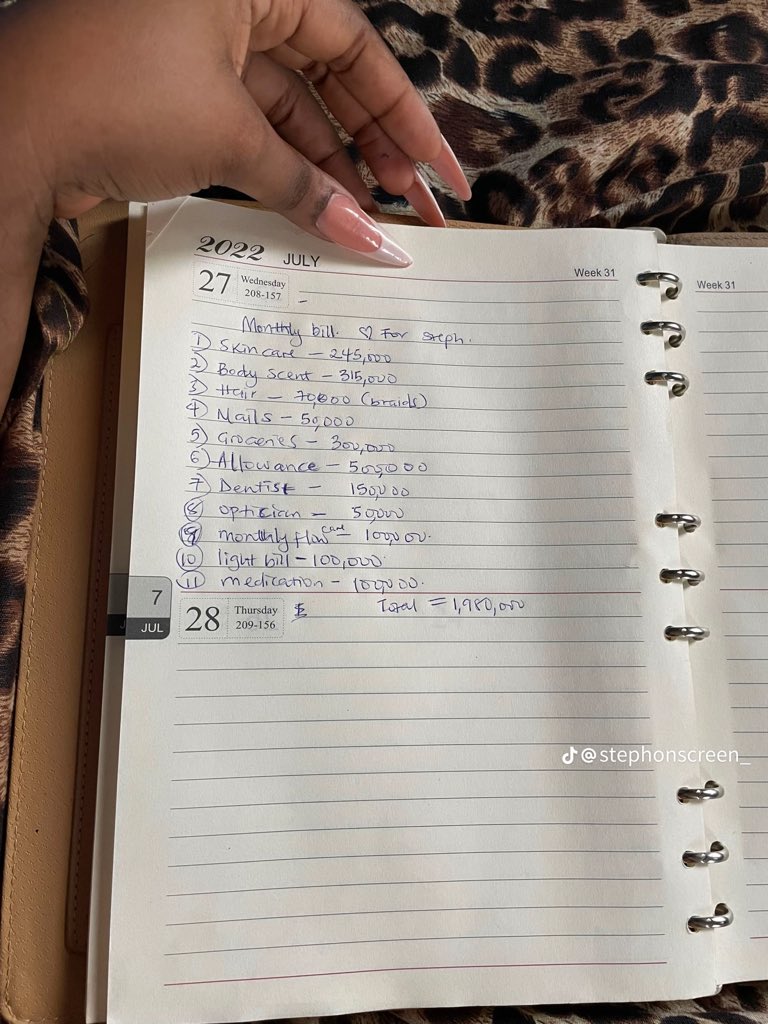 2022 JULY
27 Wednesday
208-157
Week 31
Monthly bill. ♡ For Steph.
1) Skincare – 245,000
2) Body scent – 315,000
3) Hair – 70,000 (braids)
4) Nails – 50,000
5) Groceries – 300,000
6) Allowance – 500,000
7) Dentist – 150,000
8) optician – 50,000
9) monthly flow care – 100,000.
10) light bill – 100,000.
11) medication – 100,000.
7
JUL
28 Thursday
209-156
Total = 1,980,000
Week 31
@stephonscreen_